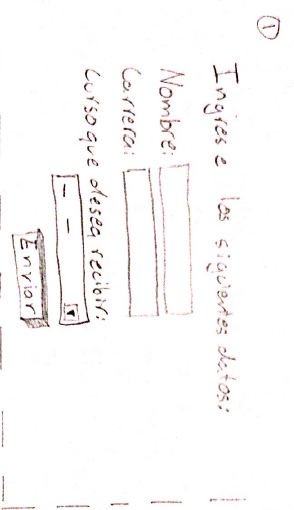 1
Ingrese los siguientes datos:
Nombre:
Carrera:
Curso que desea recibir:
- -
Enviar